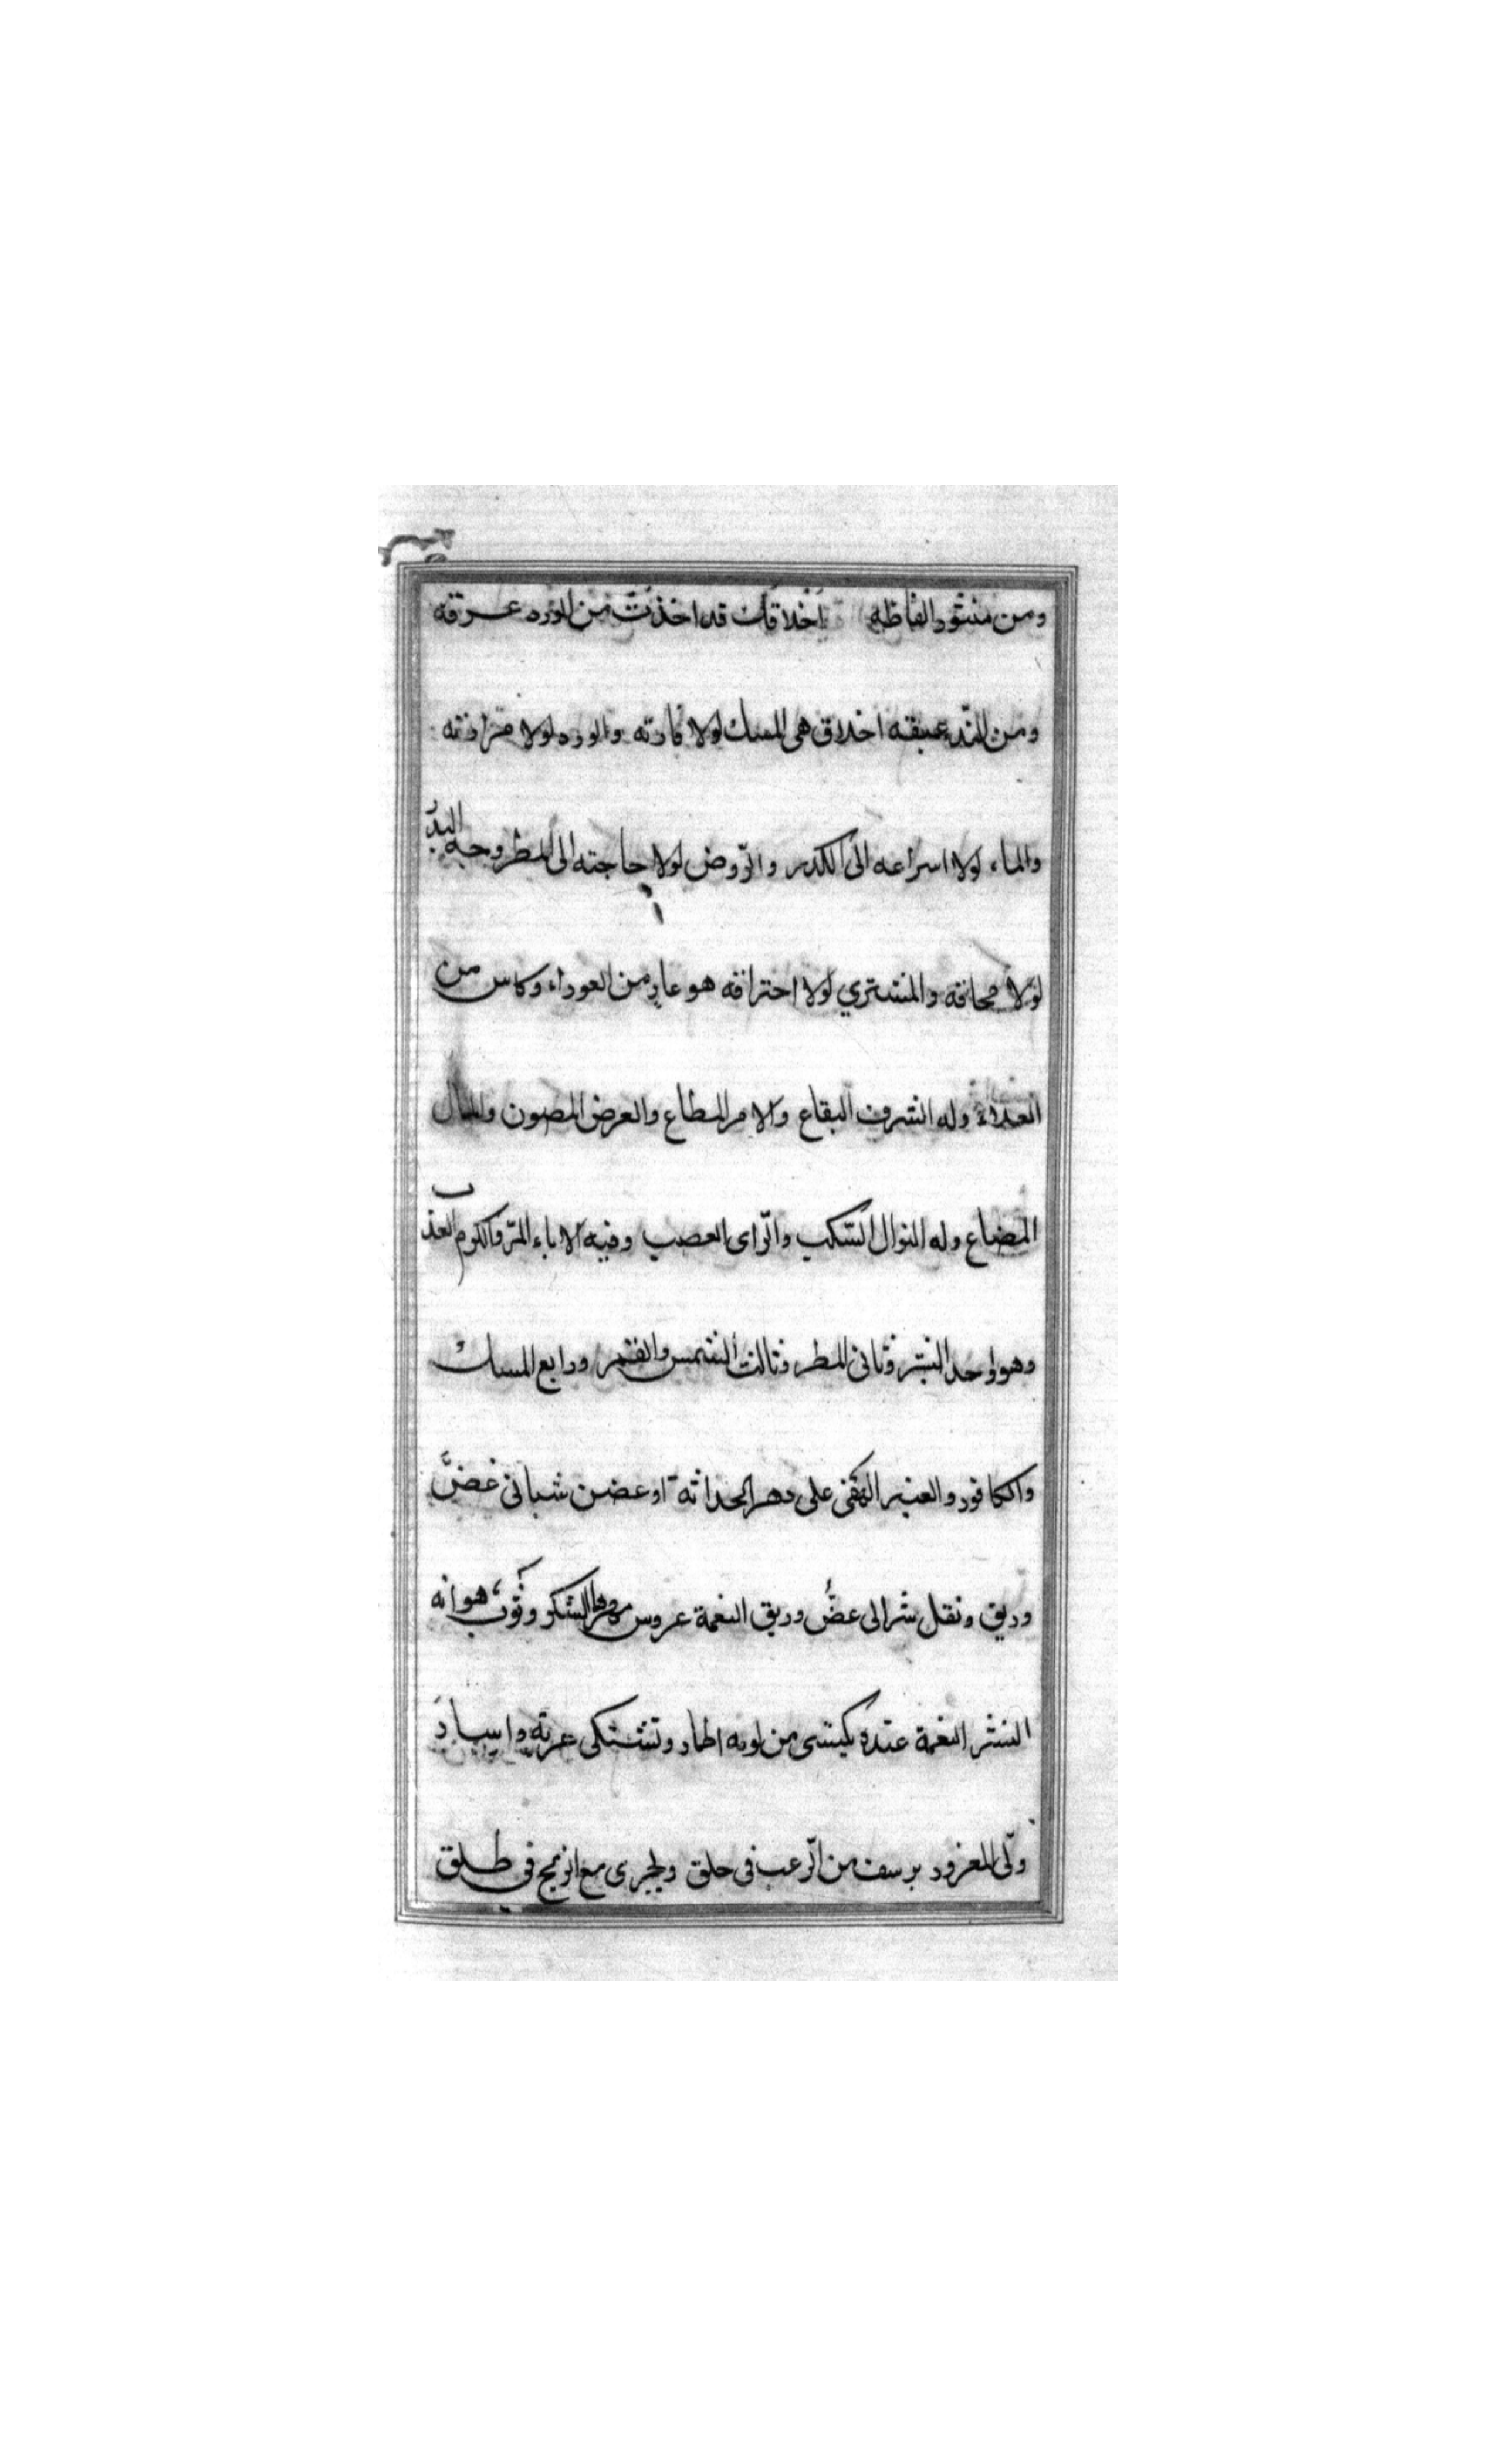 ومن منثور الفاظه اخلاقك قد اخذت من الورد عرقه
ومن الند عبيقه اخلاق هى المسك لولا فارته والورد لولا مرارته
والماء لولا اسراعه الى الكدر والروض لولا حاجته الى المطر وجه البدر
لولا محاقه والمشتري لولا احتراقه هو عار من العوراء وكاس من
العلاء وله الشرف اليفاع والامر المطاع والعرض المصون والمال
المضاع وله النوال السكب والراى العصب وفيه الاباء المر والكرم العذب
وهو واحد البشر وثانى المطر وثالث الشمس والقمر ورابع المسك
والكافور والعنبر الهفى على دهر الحداثة اذ غصن شبابى غض
وريق ونقل شرابى عض وريق النعمة عروس مهرها الشكر وثوب صوانه
النشر النعمة عنده تكتسى من لونه اطمار وتشتكى غربة واسار
ولى المغرور يرسف من الرعب فى حلق ويجرى مع الريح فى طلق